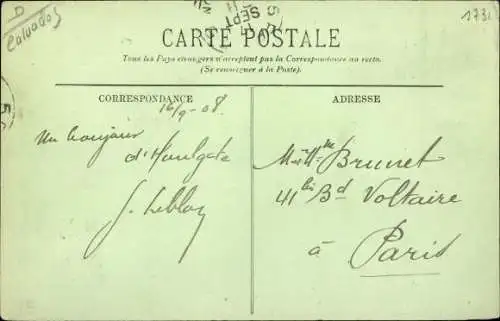 D
Calvados
SEPT
173
CARTE POSTALE
Tous les Pays étrangers n'acceptent pas la Correspondance au recto.
(Se renseigner à la Poste).
CORRESPONDANCE
16/9-08.
Un bonjour
d'Houlgate
J. Leblay
ADRESSE
Brunet
41 bis Bd Voltaire
à
Paris